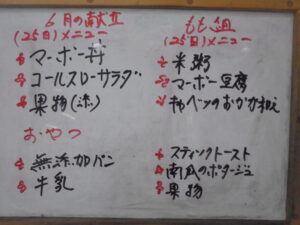 6月の献立
(25日)メニュー
☆マーボー丼
☆コールスローサラダ
☆果物
おやつ
☆無添加パン
☆牛乳
もも組
(25日)メニュー
☆米粥
☆マーボー豆腐
☆キャベツのおかか和え
☆スティックトースト
☆南瓜のポタージュ
☆果物